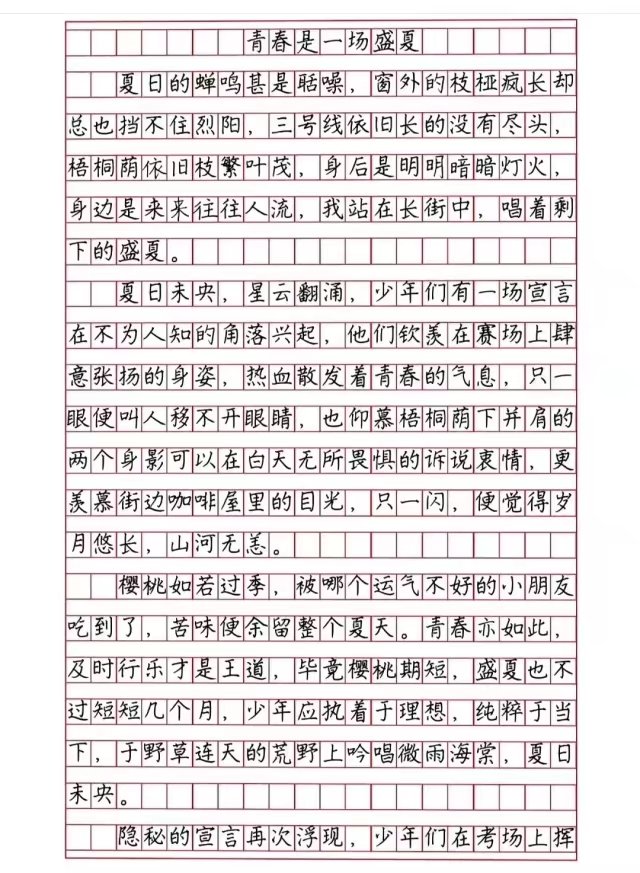 青春是一场盛夏
夏日的蝉鸣甚是聒噪，窗外的枝桠疯长却
总也挡不住烈阳，三号线依旧长的没有尽头，
梧桐荫依旧枝繁叶茂，身后是明明暗暗灯火，
身边是来来往往人流，我站在长街中，唱着剩
下的盛夏。
夏日未央，星云翻涌，少年们有一场宣言
在不为人知的角落兴起，他们钦羡在赛场上肆
意张扬的身姿，热血散发着青春的气息，只一
眼便叫人移不开眼睛，也仰慕梧桐荫下并肩的
两个身影可以在白天无所畏惧的诉说衷情，更
羡慕街边咖啡屋里的目光，只一闪，便觉得岁
月悠长，山河无恙。
樱桃如若过季，被哪个运气不好的小朋友
吃到了，苦味便余留整个夏天。青春亦如此，
及时行乐才是王道，毕竟樱桃期短，盛夏也不
过短短几个月，少年应执着于理想，纯粹于当
下，于野草连天的荒野上吟唱微雨海棠，夏日
未央。
隐秘的宣言再次浮现，少年们在考场上挥